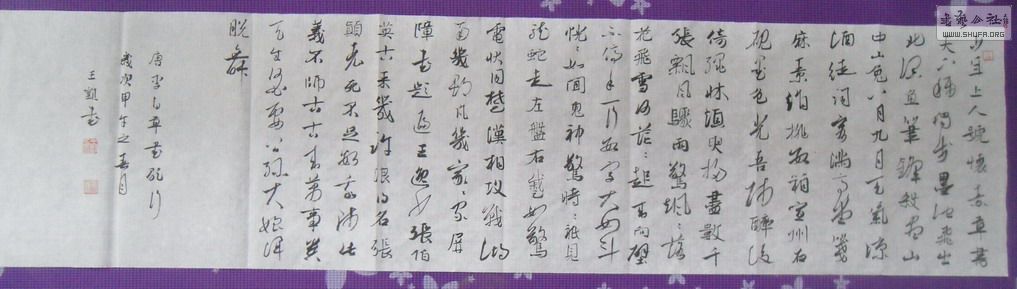 少年上人號懷素草書
天下稱獨步墨池飛出
北溟魚筆鋒殺盡山
中山兔八月九月天氣涼
酒徒詞客滿高堂箋
麻素絹排數箱宣州石
硯墨色光吾師醉後
倚繩床須臾掃盡數千
張飄風驟雨驚颯〻落
花飛雪何茫〻起來向壁
不停手一行數字大如斗
怳〻如聞鬼神驚時〻祗見
龍蛇走左盤右蹙如驚
電狀同楚漢相攻戰湖
南幾郡凡幾家〻家屏
障書題遍王逸少張伯
英古來幾許浪得名張
顛老死不足數我師此
義不師古古來萬事貴
天生何必要公孫大娘渾
脫舞
唐李白草書歌行
歲次甲午之春月
王凱書
书艺公社
WWW.SHUFA.ORG